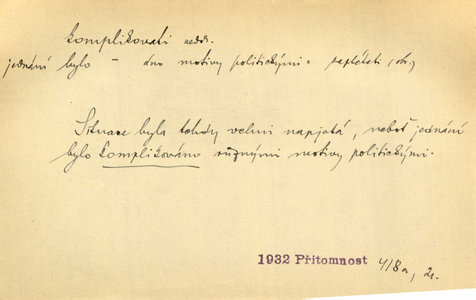 komplikovati nedok.
jednání bylo – áno motivy politickými = zaplétati (obr.)
Situace byla tehdy velmi napjatá, neboť jednání
bylo komplikováno různými motivy politickými.
1932 Přítomnost 4/8a, 21.